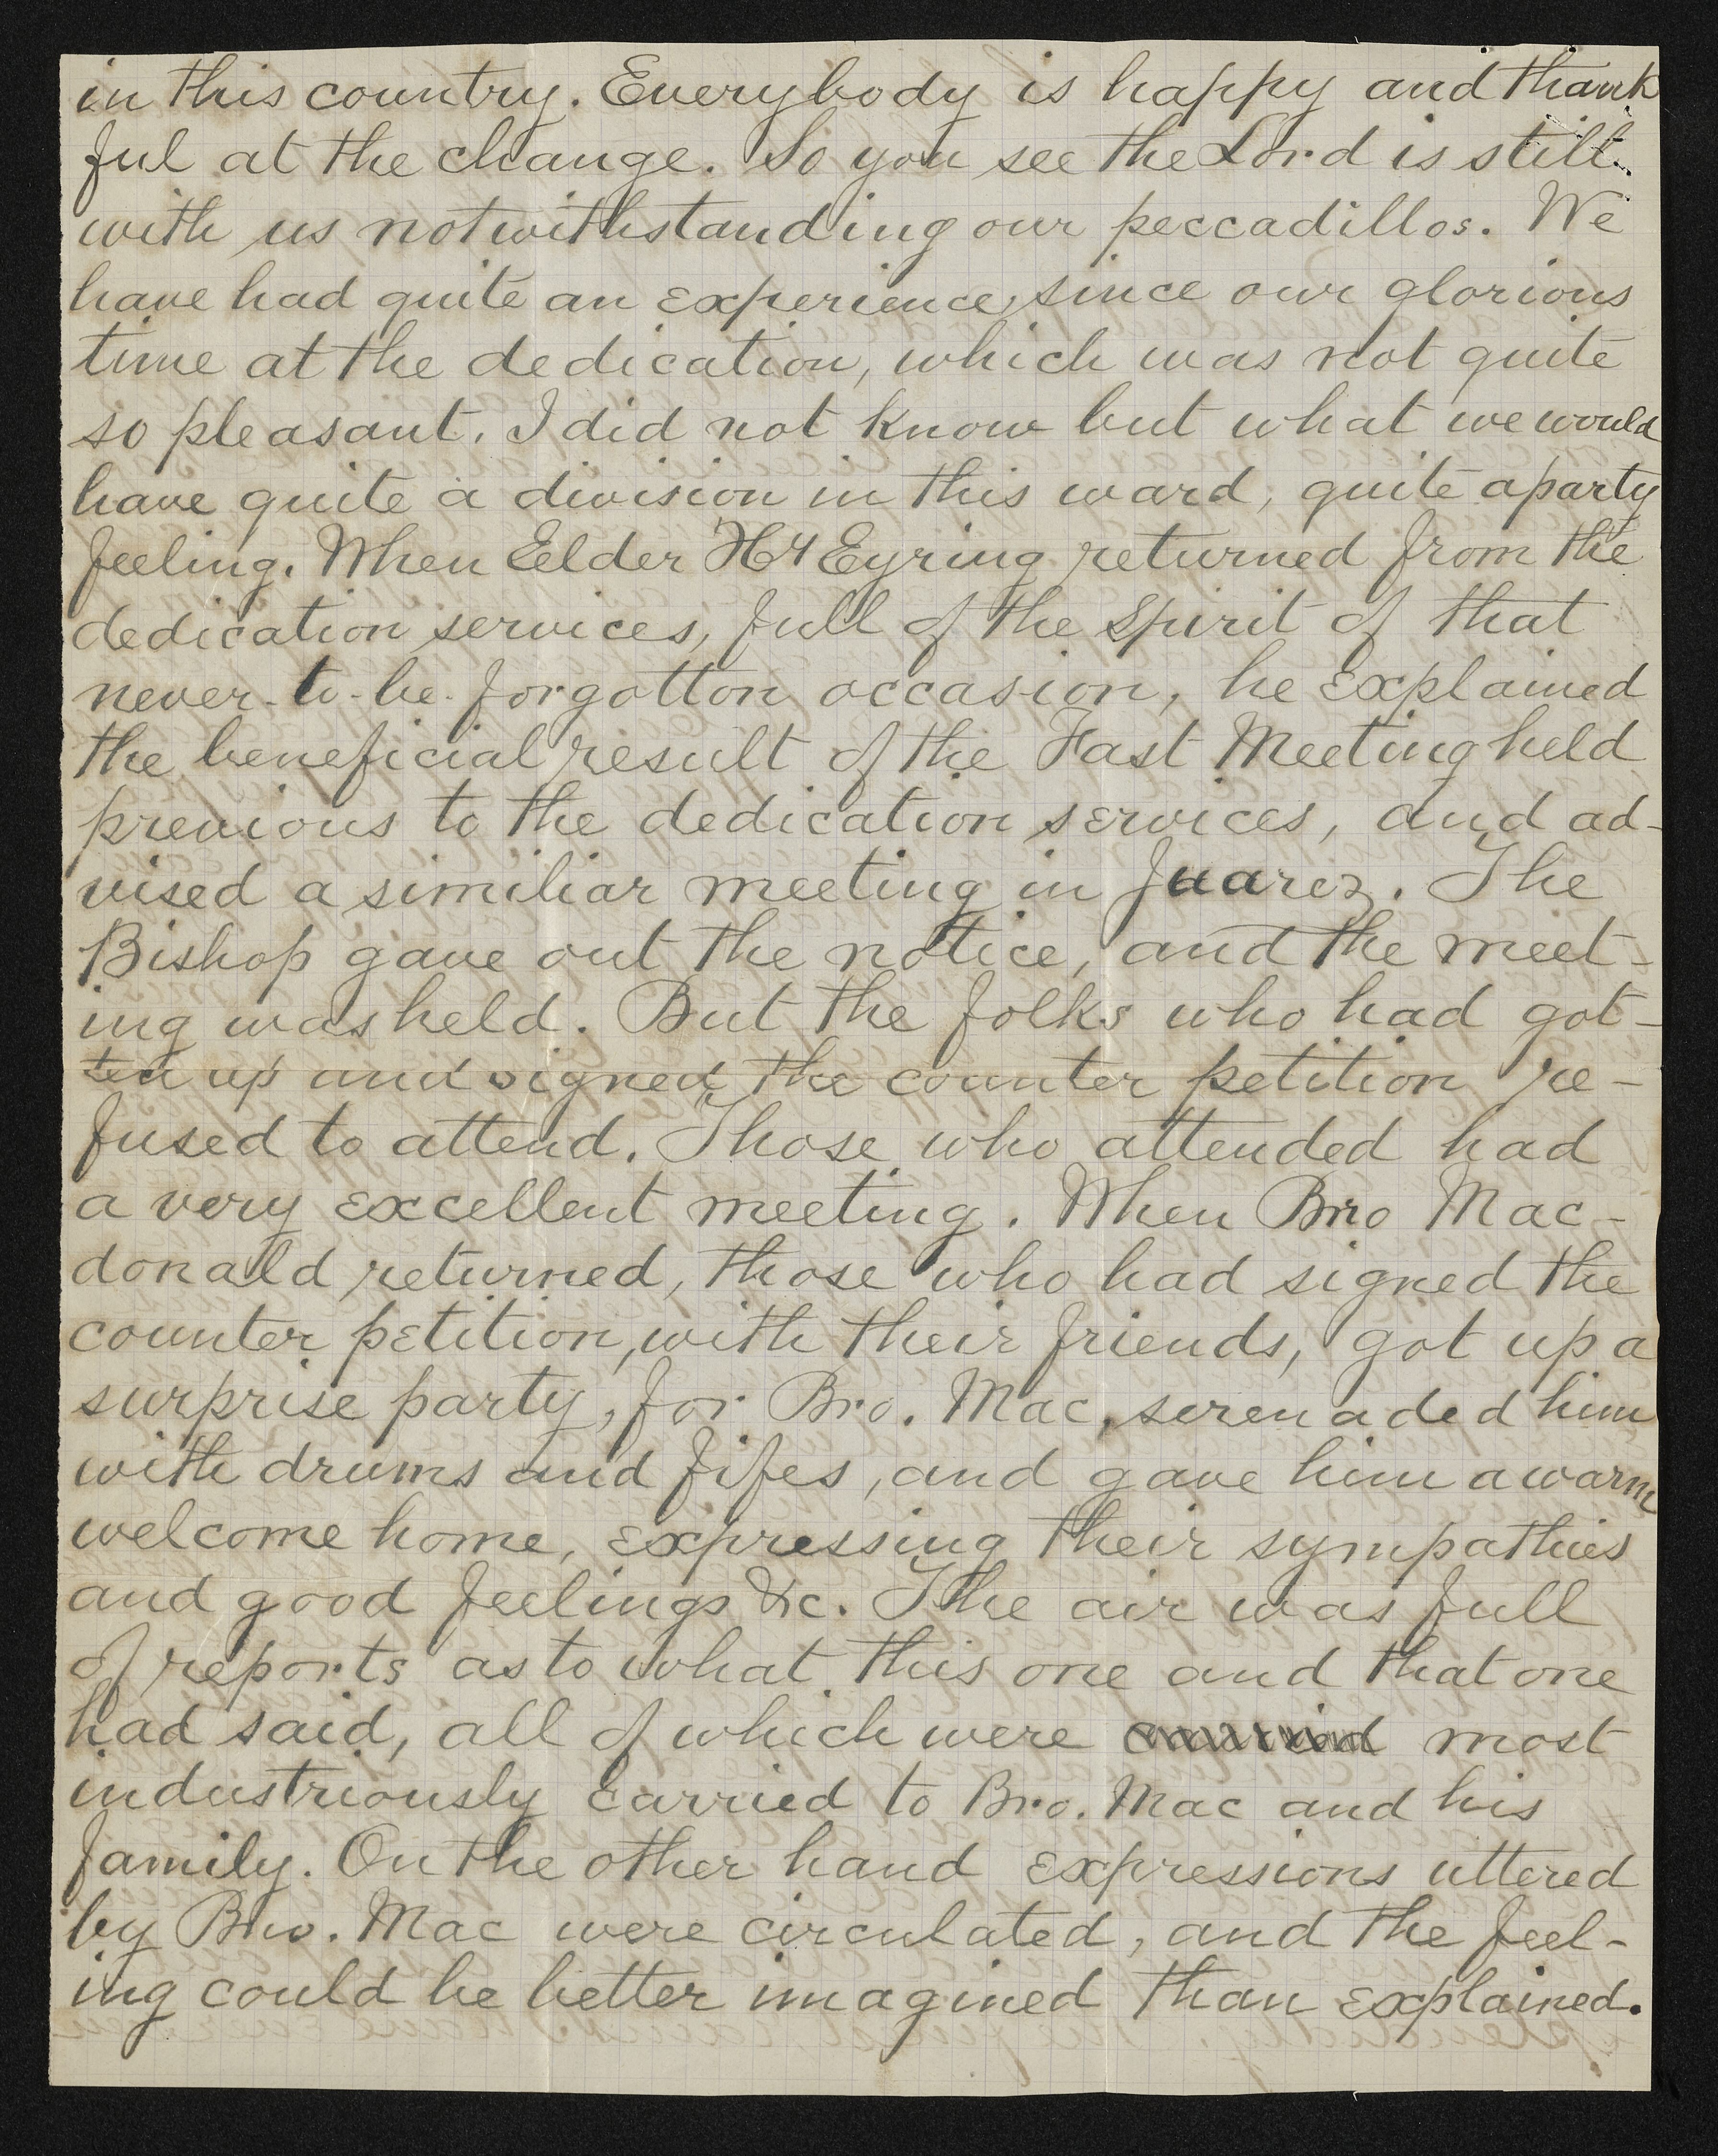 in this country. Everybody is happy and thank
ful at the change. So you see the Lord is still
with us notwithstanding our peccadillos. We
have had quite an experience, since our glorious
time at the dedication, which was not quite
so pleasant. I did not know but what we would
have quite a division in this ward, quite a party
feeling. When Elder Hy Eyring returned from the
dedication services, full of the spirit of that
never-to-be-forgotton occasion, he explained
the beneficial result of the Fast Meeting held
previous to the dedication services, and ad-
vised a similiar meeting in Juarez. The
Bishop gave out the notice, and the meet-
ing was held. But the folks who had got-
ten up and signed the counter petition re-
fused to attend. Those who attended had
a very excellent meeting. When Bro Mac-
donald returned, those who had signed the
counter petition, with their friends, got up a
surprise party, for Bro. Mac, serenaded him
with drums and fifes, and gave him a warm
welcome home, expressing their sympathies
and good feelings &c. The air was full
of reports as to what this one and that one
had said, all of which were carried most
industriously carried to Bro. Mac and his
family. On the other hand expressions uttered
by Bro. Mac were circulated, and the feel-
ing could be better imagined than explained.